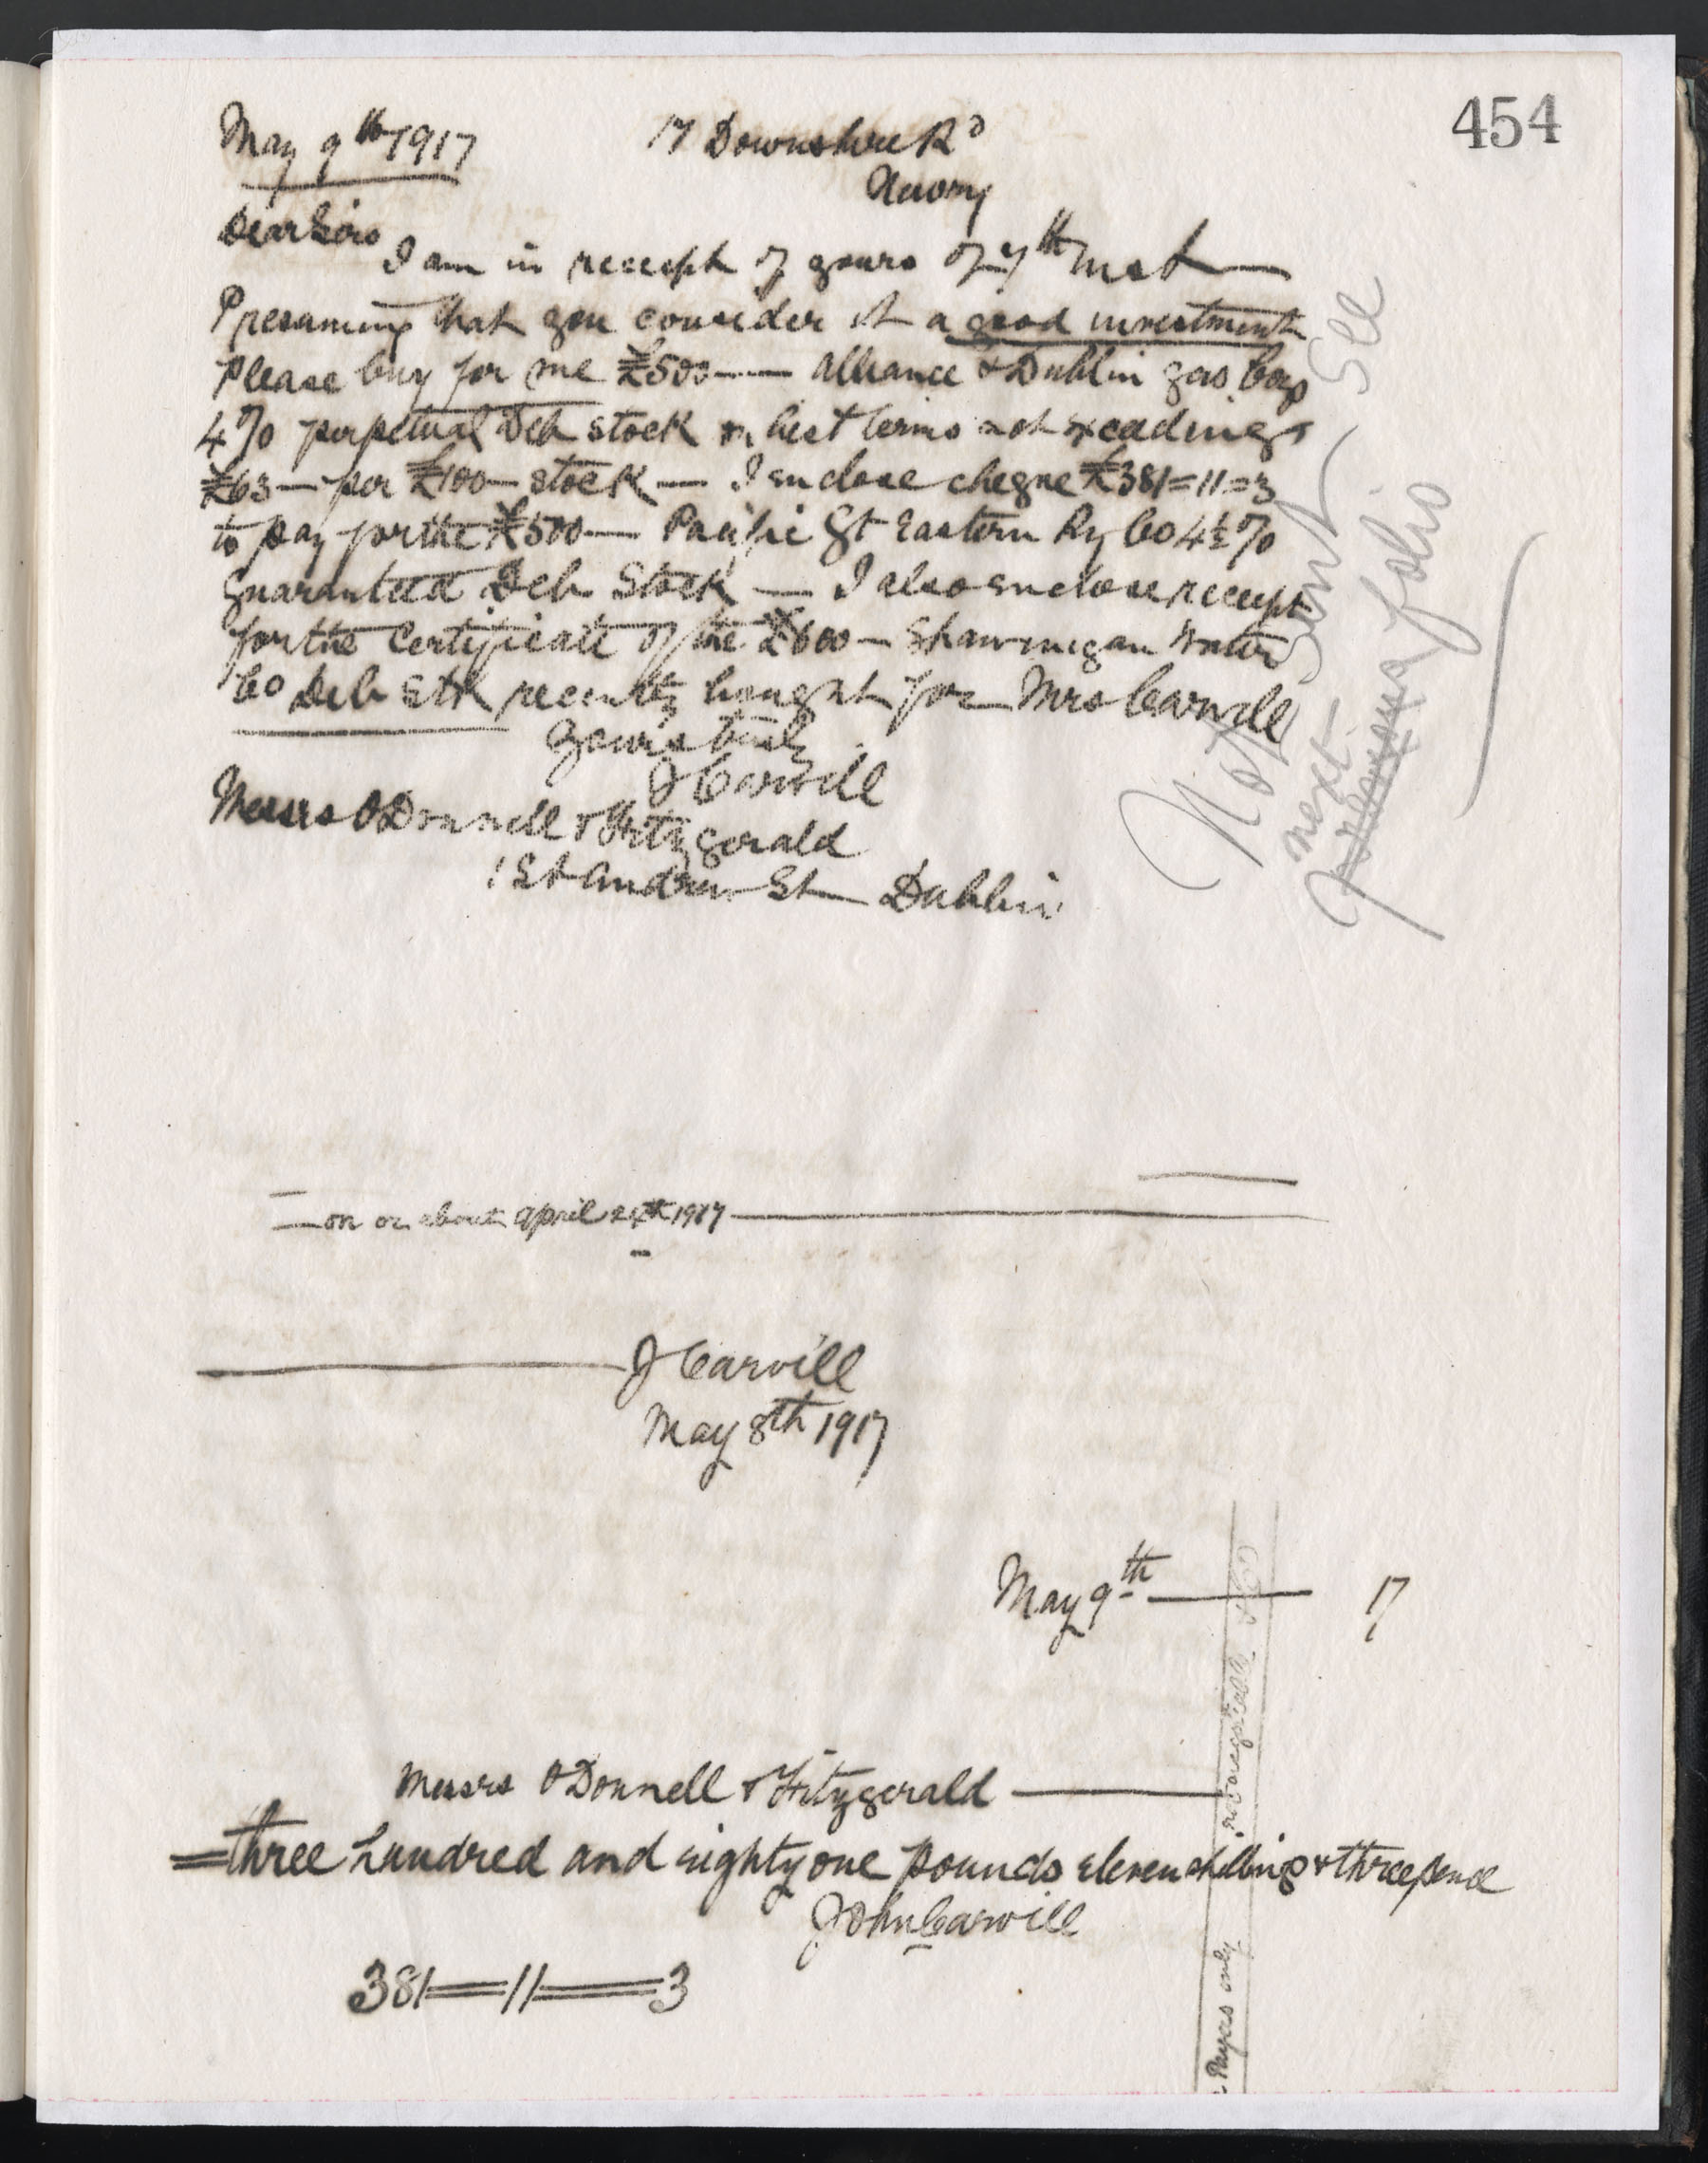 454
May 9th 1917
17 Downshire Rd
Newry
Dear Sirs
I am in receipt of yours of 7th Inst —
Presuming that you consider it a good investment
Please buy for me £500 — Alliance & Dublin Gas Coys
4% perpetual Deb stock on best terms not exceeding
£63 — per £100 — stock — I enclose cheque £381=11=3
to pay for the £500 — Pacific Gt Eastern Ry Co 4½%
Guaranteed Deb Stock — I also enclose receipt
for the Certificate of the £600 — Shawinigan Water
Co Deb Stk recently bought for Mrs Carvill
Yours truly
J Carvill
Messrs O'Donnell & Fitzgerald
1 St Andrew St — Dublin
Not sent See
next folio
— on or about April 24th 1917 —
J Carvill
May 8th 1917
May 9th — 17
Messrs O'Donnell & Fitzgerald —
= three hundred and eighty one pounds eleven shillings & three pence
John Carvill
381=11=3
Payees only